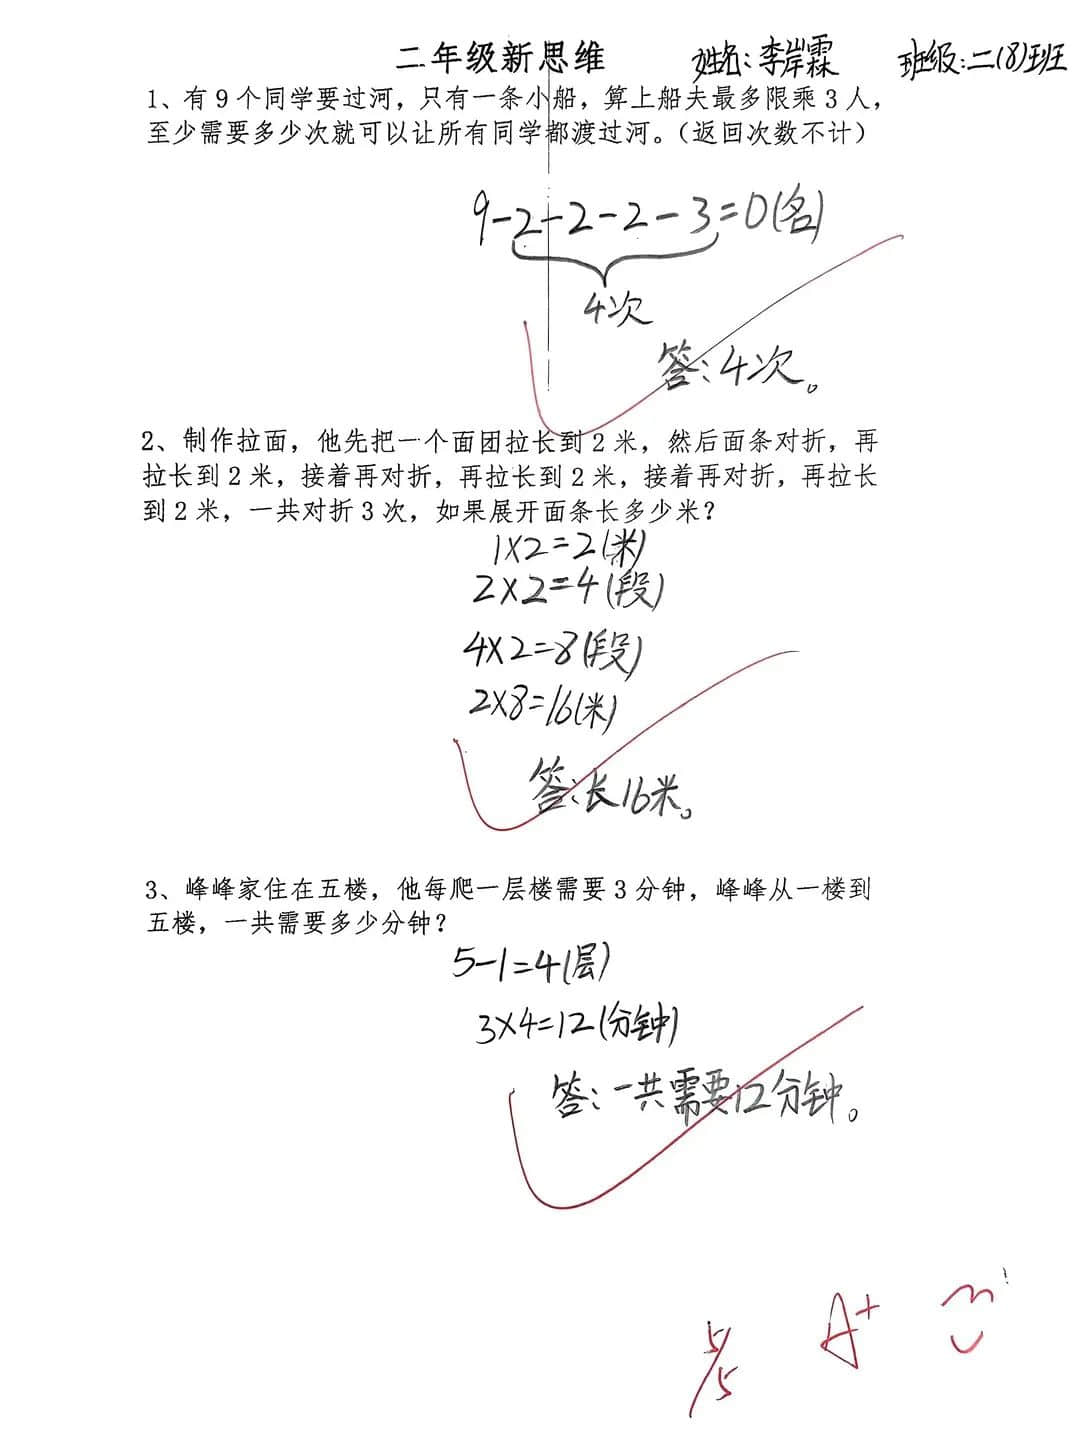 二年级新思维 姓名:李岸霖 班级:二(8)班
1、有9个同学要过河,只有一条小船,算上船夫最多限乘3人,
至少需要多少次就可以让所有同学都渡过河。(返回次数不计)
9-2-2-2-3=0(名)
4次
答:4次。
2、制作拉面,他先把一个面团拉长到2米,然后面条对折,再
拉长到2米,接着再对折,再拉长到2米,接着再对折,再拉长
到2米,一共对折3次,如果展开面条长多少米?
1×2=2(米)
2×2=4(段)
4×2=8(段)
2×8=16(米)
答:长16米。
3、峰峰家住在五楼,他每爬一层楼需要3分钟,峰峰从一楼到
五楼,一共需要多少分钟?
5-1=4(层)
3×4=12(分钟)
答:一共需要12分钟。
A+
5/5